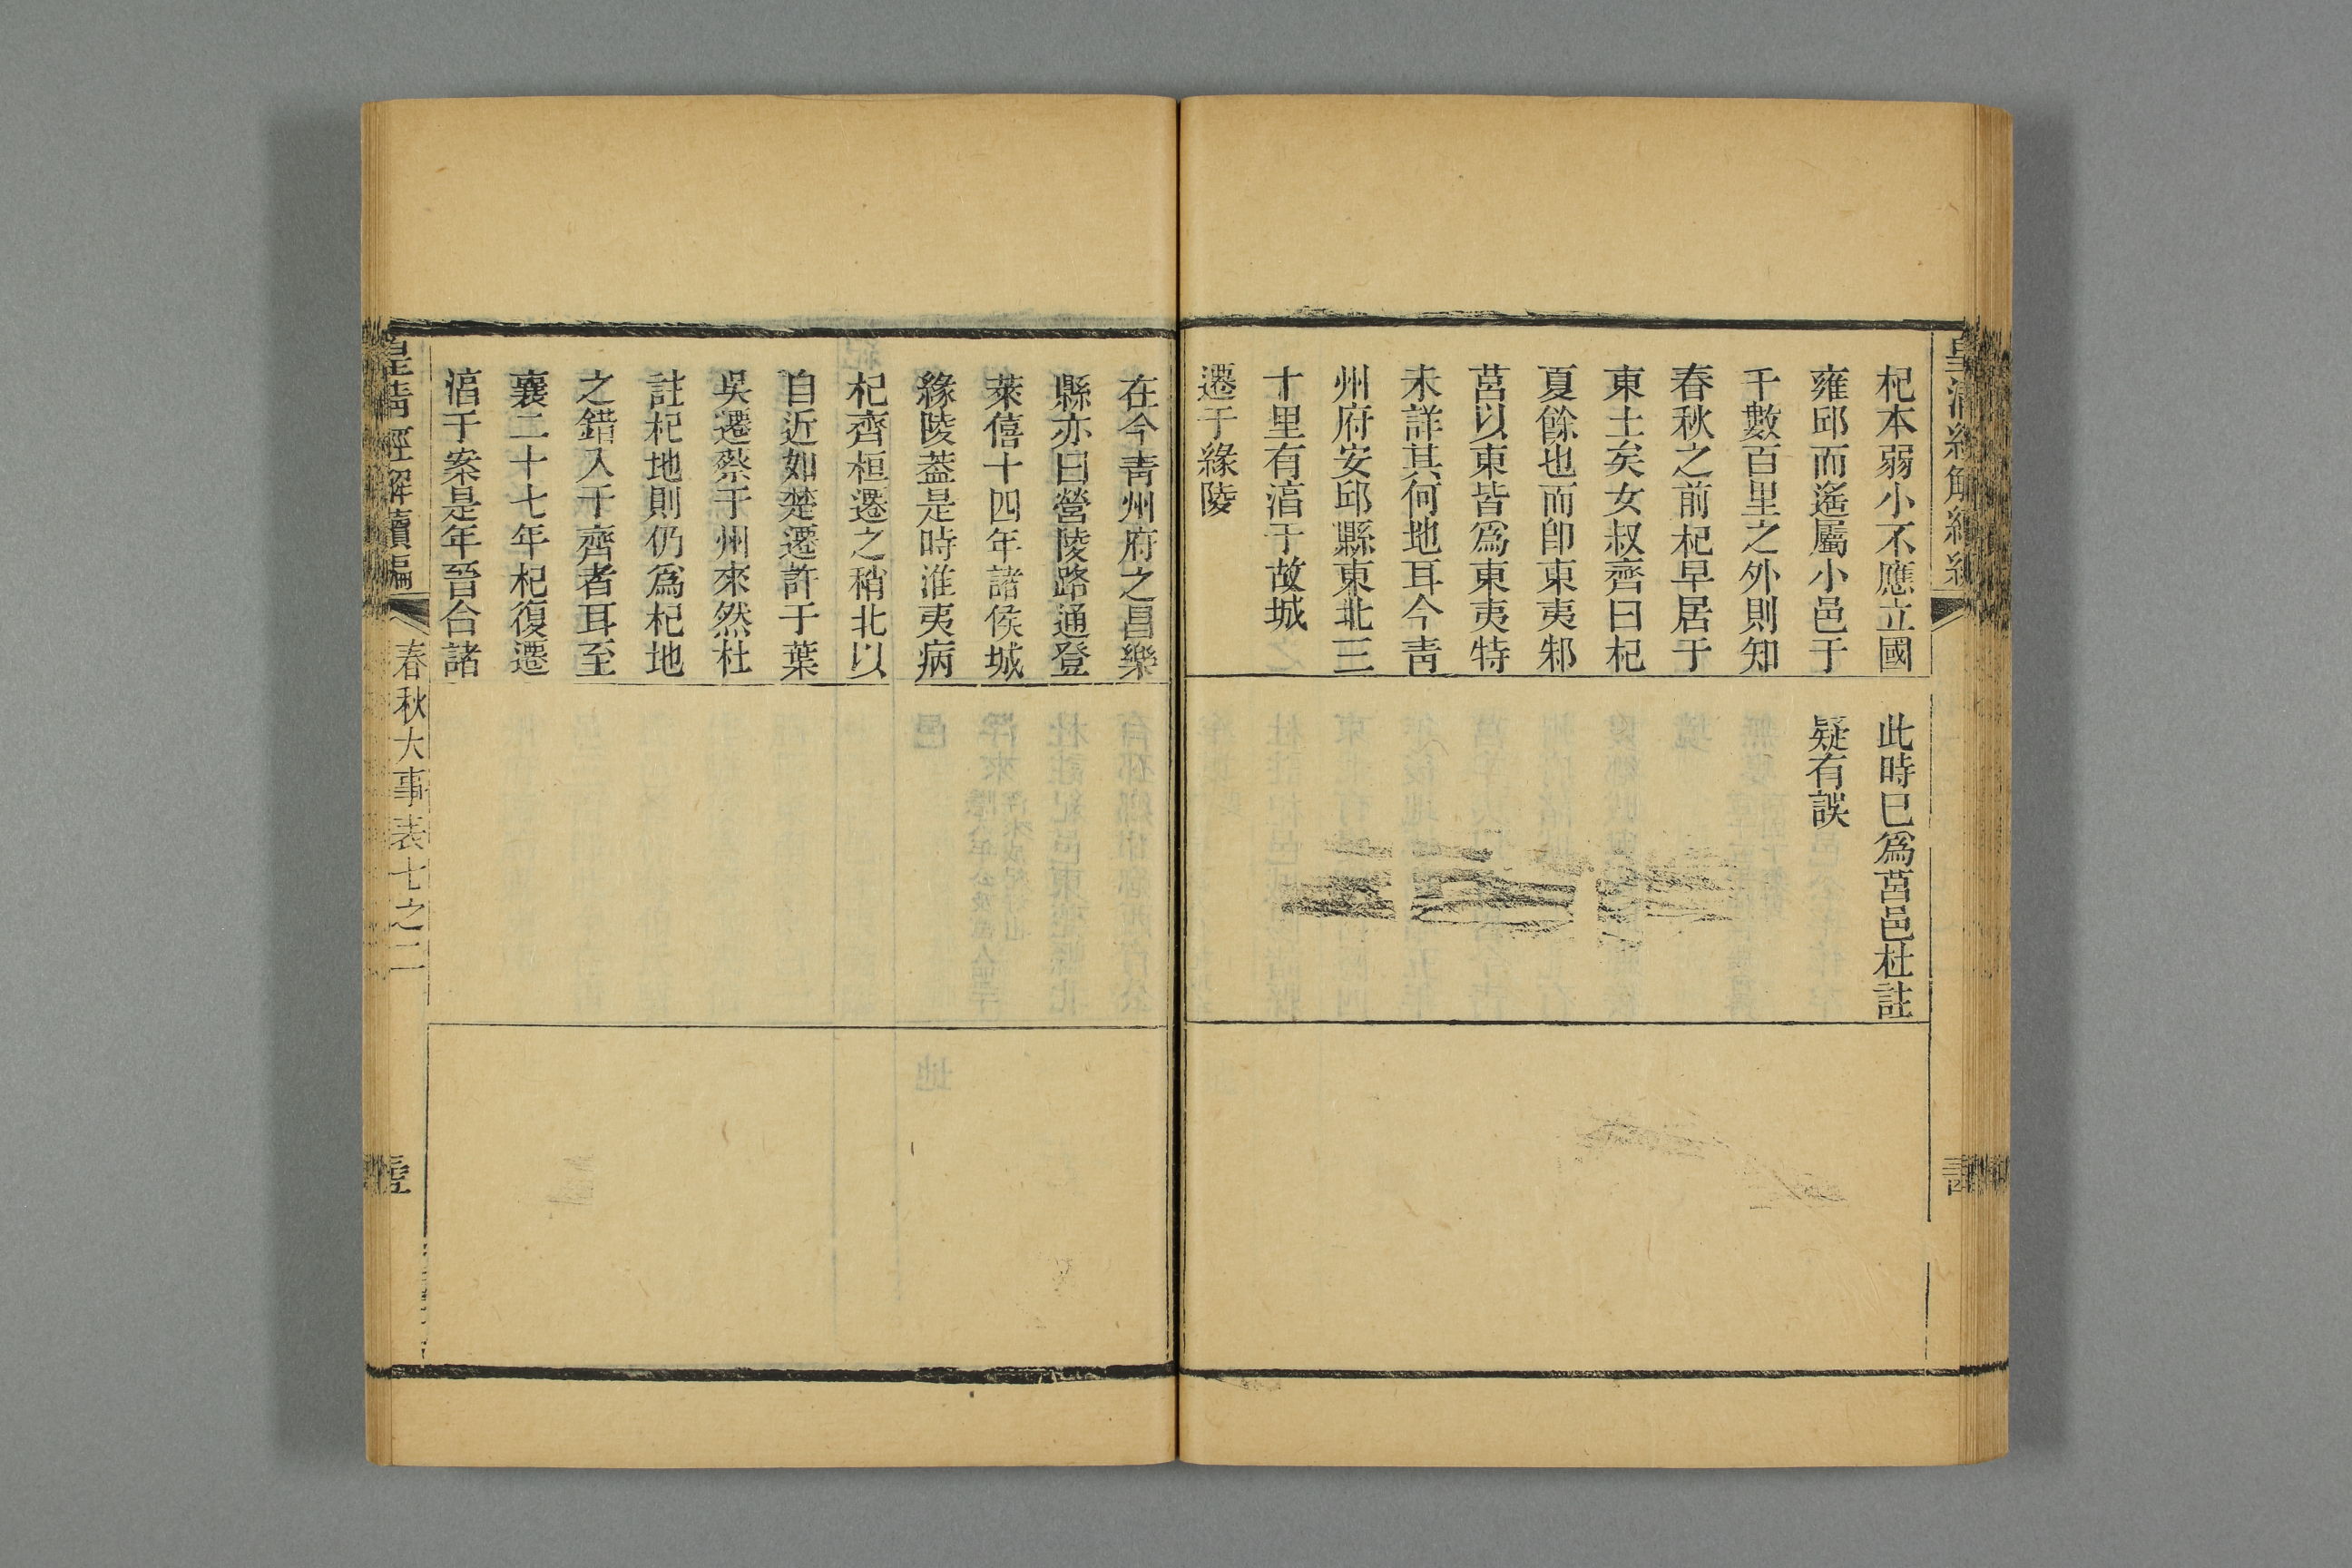 杞本弱小不應立國
雍邱而遙屬小邑于
千數百里之外則知
春秋之前杞早居于
東土矣女叔齊曰杞
夏餘也而卽東夷邾
莒以東皆爲東夷特
未詳其何地耳今靑
州府安邱縣東北三
十里有淳于故城
遷于緣陵
此時已爲莒邑杜註
疑有誤
在今靑州府之昌樂
縣亦曰營陵路通登
萊僖十四年諸侯城
緣陵葢是時淮夷病
杞齊桓遷之稍北以
自近如楚遷許于葉
吳遷蔡于州來然杜
註杞地則仍爲杞地
之錯入于齊者耳至
襄二十七年杞復遷
淳于案是年晉合諸
皇淸經解續編
春秋大事表七之二